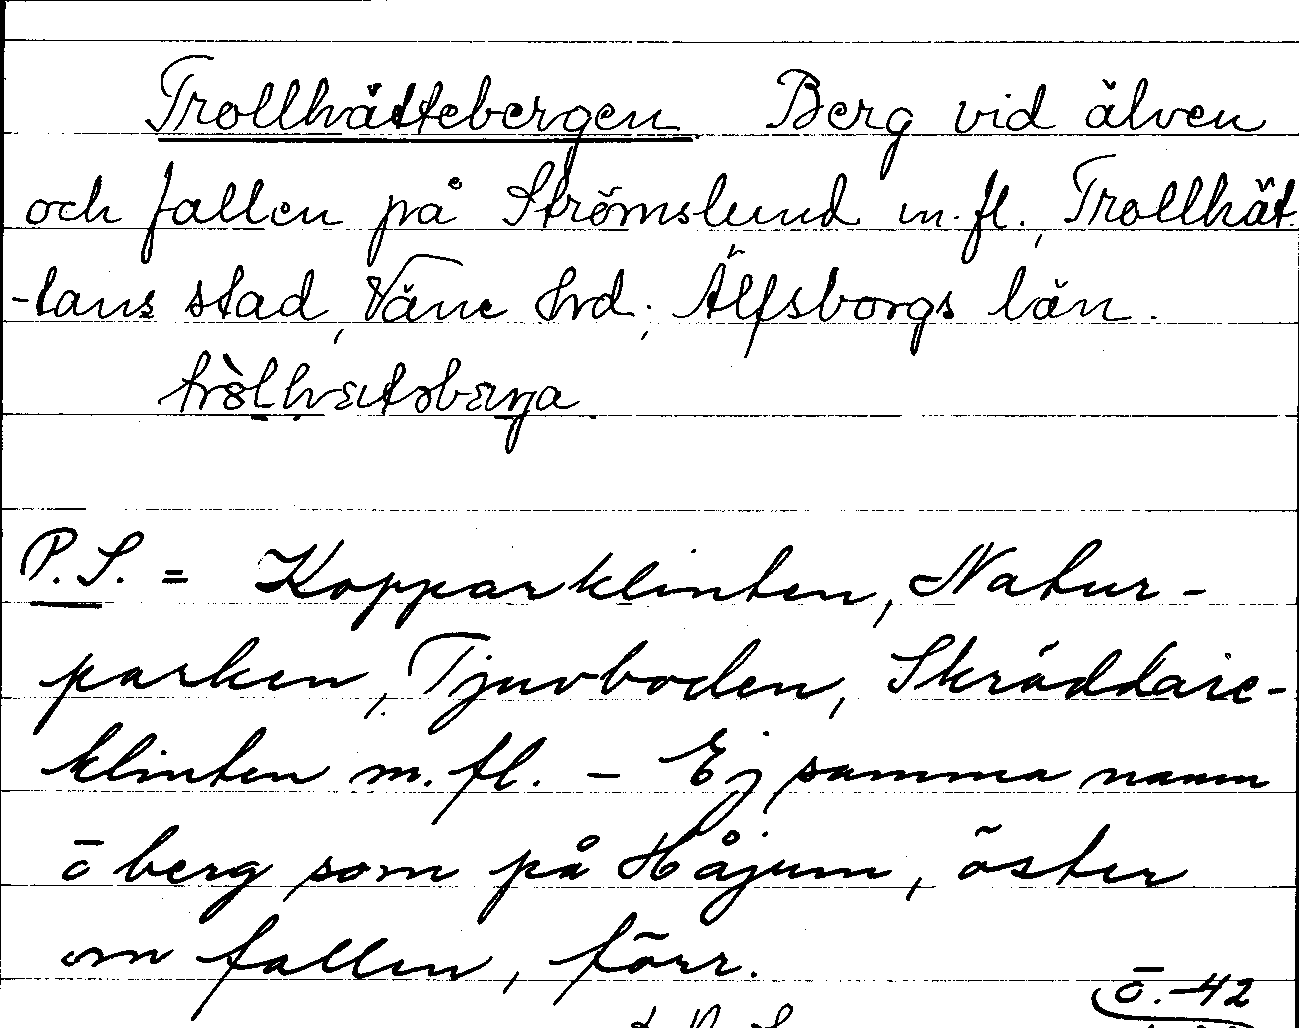 Trollhättebergen. Berg vid älven
och fallen på Strömslund m.fl., Trollhät-
-tans stad, Väne hrd; Älfsborgs län.
P.S. = Kopparklinten, Natur-
parken, Tjuvboden, Skräddare-
klinten m.fl. - Ej samma namn
o berg som på Håjum, öster
om fallen, förr.
ö.-42